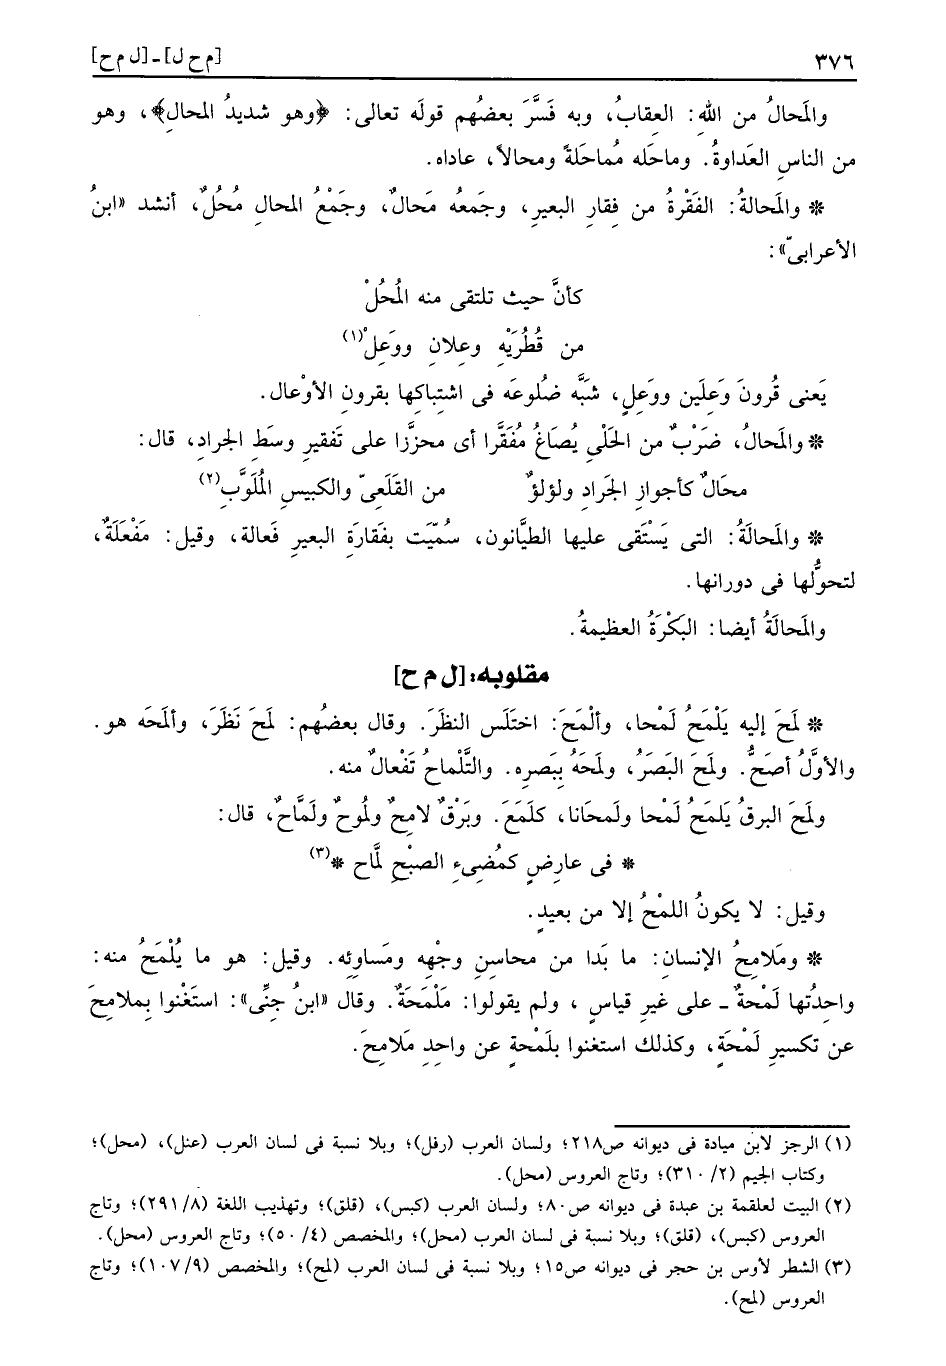 ٣٧٦ [م ح ل] ـ [ل م ح]
والمَحالُ من اللهِ: العِقابُ، وبه فَسَّرَ بعضُهم قولَه تعالى: ﴿وهو شديدُ المحالِ﴾، وهو
من الناسِ العَداوةُ. وماحَله مُماحَلةً ومحالاً، عاداه.
* والمَحالةُ: الفَقْرةُ من فِقارِ البعيرِ، وجَمعُه مَحالٌ، وجَمْعُ المحالِ مُحُلٌ، أنشد «ابنُ
الأعرابىّ»:
كأنَّ حيث تلتقى منه المُحُلْ
من قُطُرَيْهِ وعِلانِ ووَعِلْ(١)
يَعنى قُرونَ وَعَلَين ووَعَلٍ، شبَّه ضلُوعَه فى اشتِباكِها بقرونِ الأوْعال.
* والمَحالُ، ضَرْبٌ من الحَلْىِ يُصَاغُ مُفَقَّرا أى محزَّزا على تَفقيرِ وسَطِ الجرادِ، قال:
محَالٌ كأجوازِ الجَرادِ ولؤلؤٌ من القَلَعىّ والكبيسِ المُلَوَّبِ(٢)
* والمَحالَةُ: التى يَسْتَقى عليها الطيَّانون، سمُيّت بفَقارَةِ البعيرِ فَعالة، وقيل: مَفْعَلَةٌ،
لتحوُّلها فى دورانها.
والمَحالَةُ أيضا: البَكْرَةُ العظيمةُ.
مقلوبه: [ل م ح]
* لَمَحَ إليه يَلْمَحُ لَمْحا، وألْمَحَ: اختَلَس النظرَ. وقال بعضُهم: لَمَحَ نَظَرَ، وألمَحَه هو.
والأوَّلُ أصَحُّ. ولمَحَ البَصَرُ، ولمَحَهُ بِبَصرِه. والتَّلْماحُ تَفْعالٌ منه.
ولمَحَ البرقُ يَلمَحُ لَمْحا ولَمحَانا، كلَمَعَ. وبَرْقٌ لامحٌ ولمُوحٌ ولَمَّاحٌ، قال:
* فى عارِضٍ كمُضىءِ الصبْحِ لمَّاح *(٣)
وقيل: لا يكونُ اللمْحُ إلا من بعيدٍ.
* ومَلامِحُ الإنسانِ: ما بَدا من محاسنِ وجْهِه ومَساوئِه. وقيل: هو ما يُلْمَحُ منه:
واحِدتُها لَمْحةٌ ـ على غيرِ قياسٍ ، ولم يقولوا: مَلْمَحَةٌ. وقال «ابنُ جنِّى»: استَغْنوا بِملامحَ
عن تكسيرِ لَمْحَةٍ، وكذلك استغنوا بلَمْحةٍ عن واحِدِ مَلامِحَ.
(١) الرجز لابن ميادة فى ديوانه ص٢١٨؛ ولسان العرب (رفل)؛ وبلا نسبة فى لسان العرب (عنل)، (محل)؛
وكتاب الجيم (٢/ ٣١٠)؛ وتاج العروس (محل).
(٢) البيت لعلقمة بن عبدة فى ديوانه ص٨٠؛ ولسان العرب (كبس)، (قلق)؛ وتهذيب اللغة (٨/ ٢٩١)؛ وتاج
العروس (كبس)، (قلق)؛ وبلا نسبة فى لسان العرب (محل)؛ والمخصص (٤/ ٥٠)؛ وتاج العروس (محل).
(٣) الشطر لأوس بن حجر فى ديوانه ص١٥؛ وبلا نسبة فى لسان العرب (لمح)؛ والمخصص (٩/ ١٠٧)؛ وتاج
العروس (لمح).